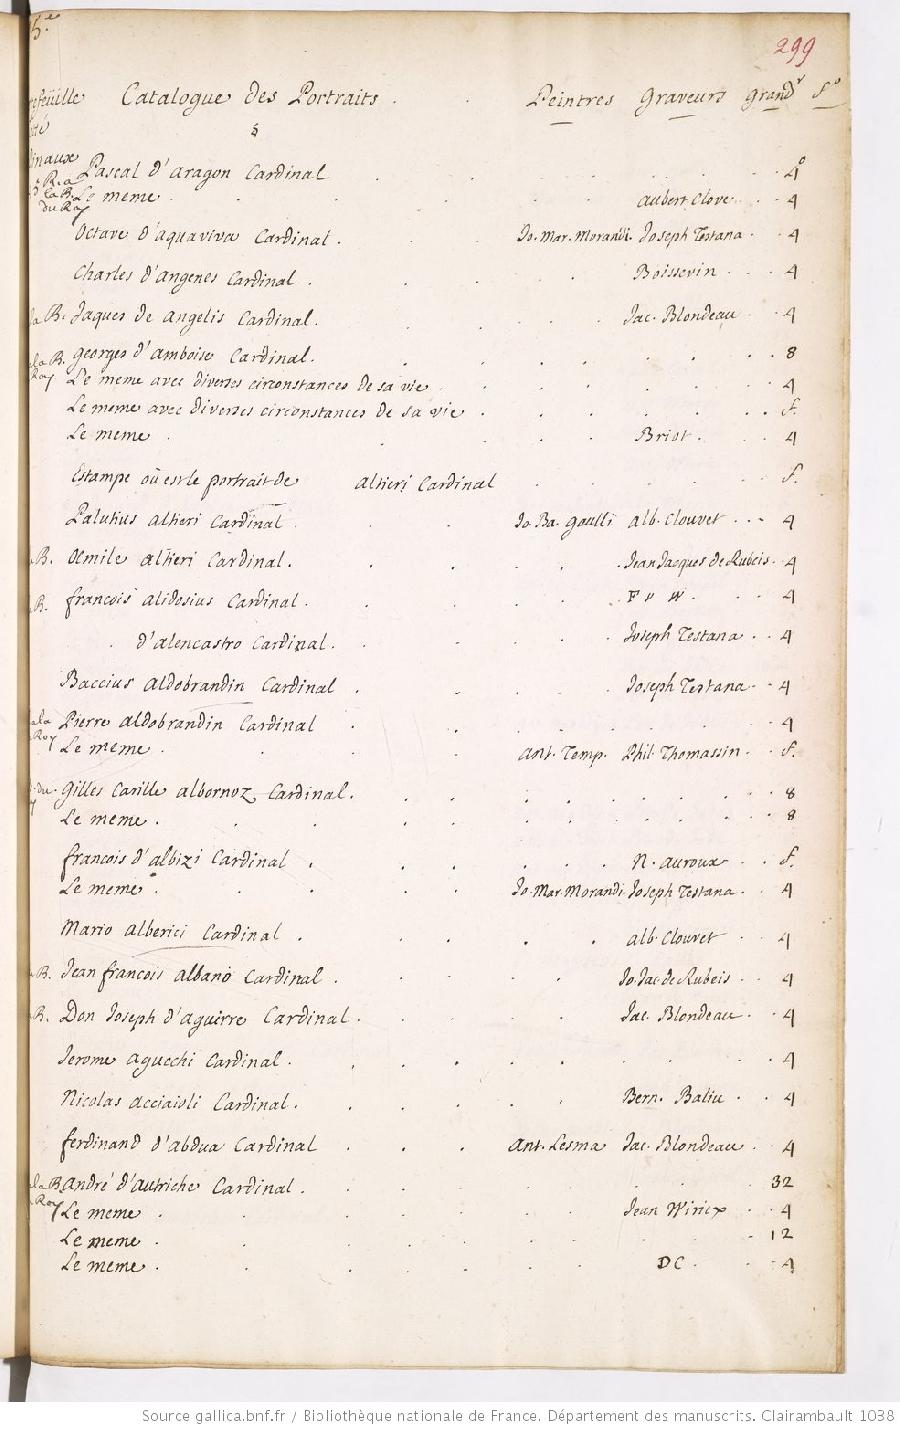 299
Catalogue des Portraits . . Peintres Graveurs Grandr fo
§
Pascal d'aragon Cardinal . . . . . 4o
Le meme . . . aubert Clove . . 4
Octave d'aquaviva Cardinal . Jo. Mar. Morandi. Joseph Testana . 4
Charles d'angenes Cardinal . . . Boissevin . . 4
la B. Jaques de angelis Cardinal. . . . Jac. Blondeau . 4
la B. georges d'amboise Cardinal. . . . 8
Roy Le meme avec diverses circonstances de sa vie . . . 4
Le meme avec diverses circonstances de sa vie . . . f.
Le meme . . . Briot . . 4
Estampe où est le portrait de altieri Cardinal . . f.
Palutius altieri Cardinal . . Jo. Ba. gaulli alb. Clouvet . . . 4
B. Oemile altieri Cardinal. . . . Jean Jacques de Rubeis . 4
R. francois alidosius Cardinal . . . 4
. d'alencastro Cardinal. . . . Joseph Testana . . 4
Baccius aldobrandin Cardinal . . . Joseph Testana . . 4
ala Pierre aldobrandin Cardinal . . . 4
Roy Le meme . . . ant. Temp. Phil. Thomassin . . f.
du gilles Carille albornoz Cardinal. . . . 8
Le meme . . . . 8
francois d'albizi Cardinal . . . N. auroux . . f.
Le meme . . . Jo. Mar. Morandi. Joseph Testana . . 4
Mario alberici Cardinal . . . . alb. Clouvet . . 4
B. Jean francois albano Cardinal . . . Jo. Jac. de Rubeis . . 4
R. Don Joseph d'aguirre Cardinal . . . Jac. Blondeau . . 4
Jerome agucchi Cardinal . . . . 4
Nicolas acciaioli Cardinal . . . Bern. Baliu . . 4
ferdinand d'abdua Cardinal . . . ant. Lesma Jac. Blondeau . 4
ala B. andré d'autriche Cardinal . . . 32
Roy Le meme . . . Jean Wirix . . 4
Le meme . . . . 12
Le meme . . . DC . . 4
Source gallica.bnf.fr / Bibliothèque nationale de France. Département des manuscrits. Clairambault 1038